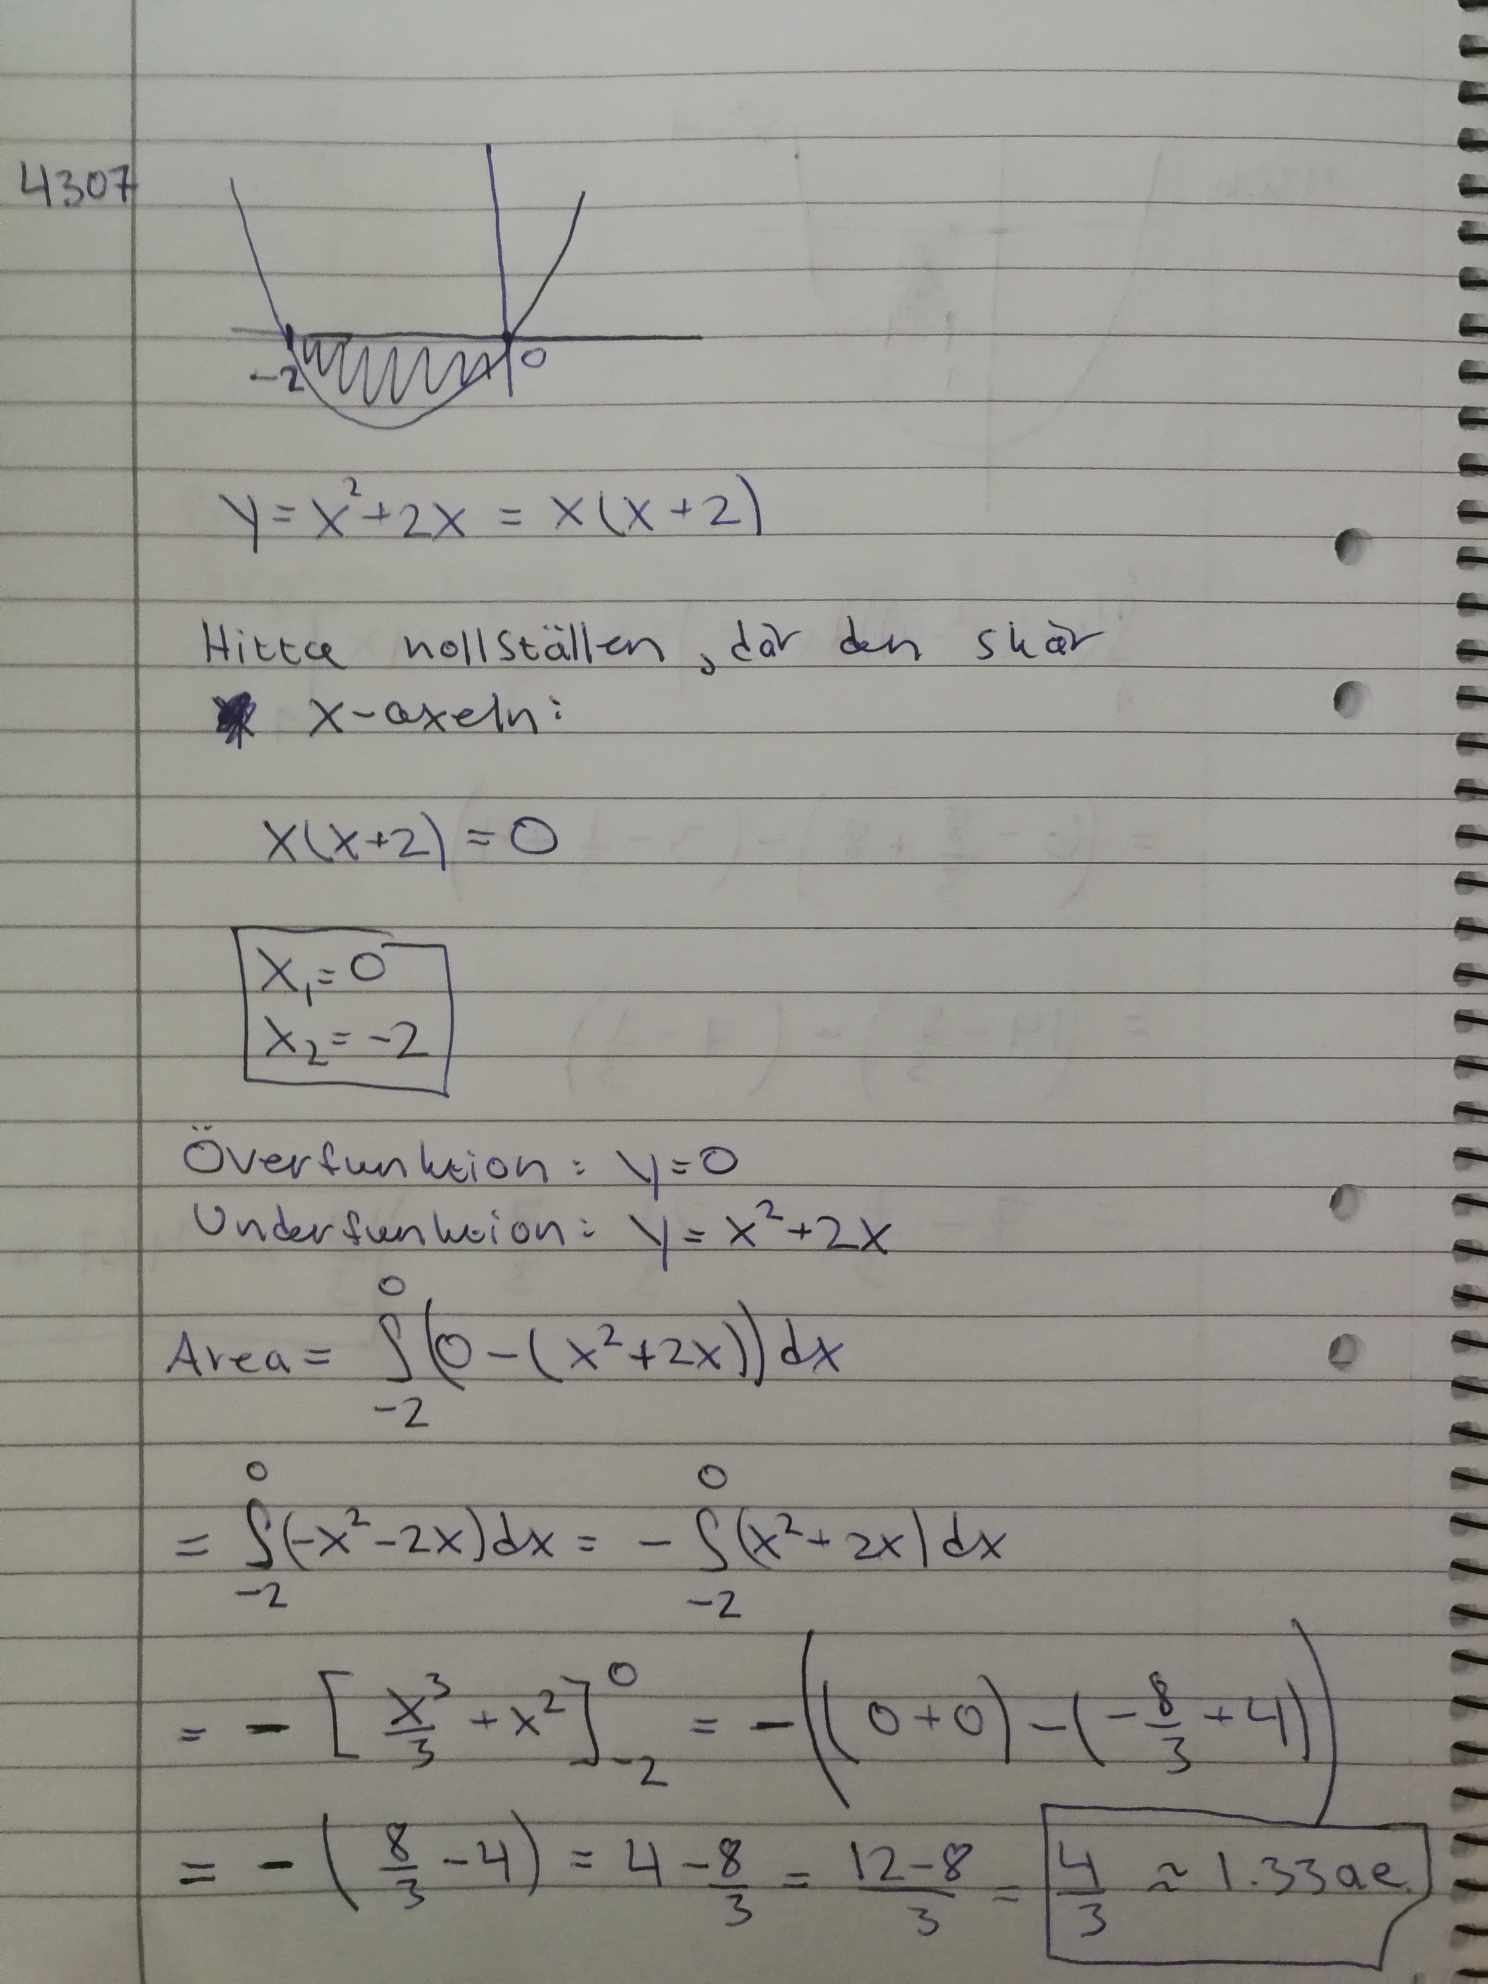 4307
-2 0
y = x² + 2x = x(x+2)
Hitta nollställen, där den skär
x-axeln:
x(x+2) = 0
x₁ = 0
x₂ = -2
Överfunktion: y = 0
Underfunktion: y = x² + 2x
Area = ∫₋₂⁰ (0 - (x² + 2x)) dx
= ∫₋₂⁰ (-x² - 2x) dx = - ∫₋₂⁰ (x² + 2x) dx
= - [x³/3 + x²]₋₂⁰ = - ((0+0) - (-8/3 + 4))
= - (8/3 - 4) = 4 - 8/3 = (12-8)/3 = 4/3 ≈ 1.33 ae.